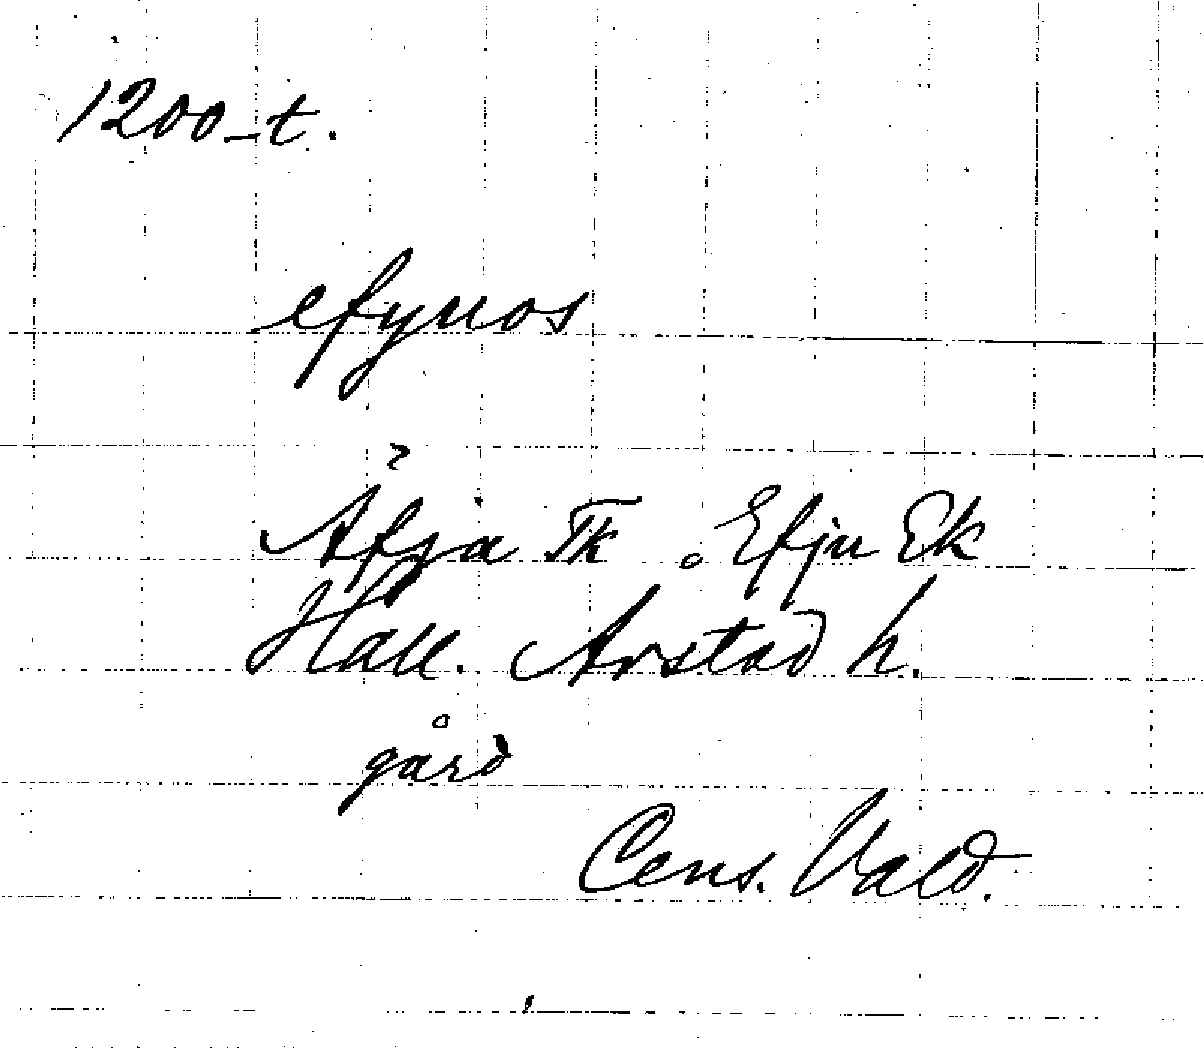 1200-t.
efynos
?
Äfja Tk . Efju Ek
Hall. Årstad h.
gård
Cens. Vald.